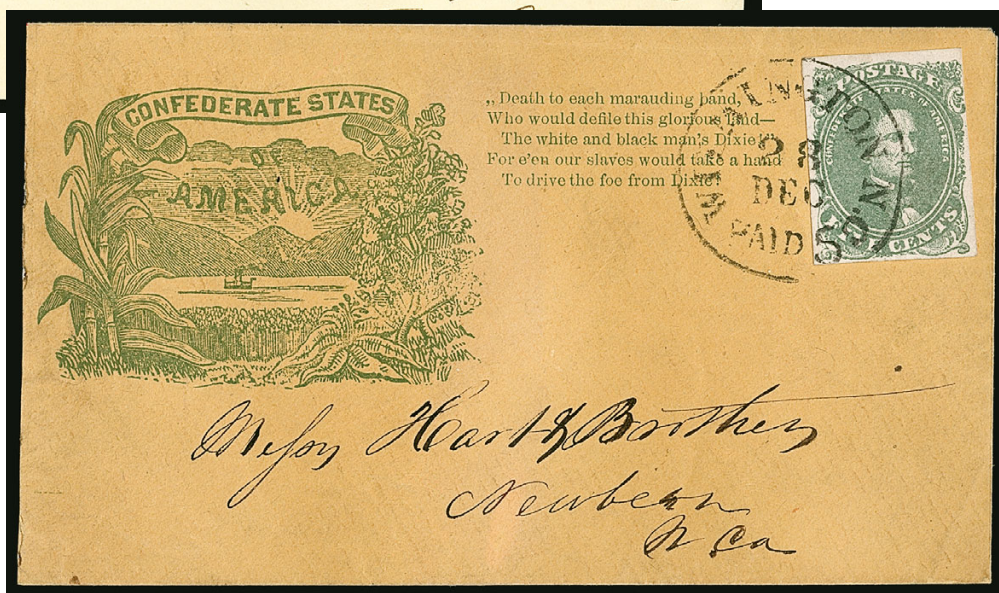 CONFEDERATE STATES
OF
AMERICA
„Death to each marauding band,
Who would defile this glorious land—
The white and black man's Dixie!
For e'en our slaves would take a hand
To drive the foe from Dixie!
WILMINGTON N.C.
28
DEC
PAID 5
POSTAGE
CONFEDERATE STATES OF AMERICA
CENTS
Messrs Hart & Brother
Newbern
N Ca